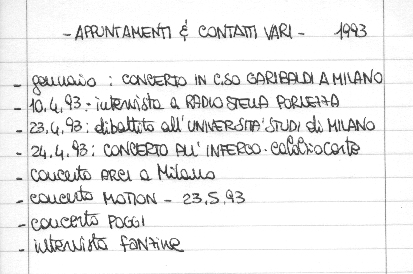 - APPUNTAMENTI & CONTATTI VARI - 1993
- gennaio : CONCERTO IN C.SO GARIBALDI A MILANO
- 10.4.93 - intervista a RADIO STELLA PORRETTA
- 23.4.93 : dibattito all'UNIVERSITA' STUDI di MILANO
- 24.4.93 : CONCERTO ALL'INFERCO -
- concerto ARCI a Milano
- concerto MOTION - 23.5.93
- concerto POGGI
- intervista fanzine